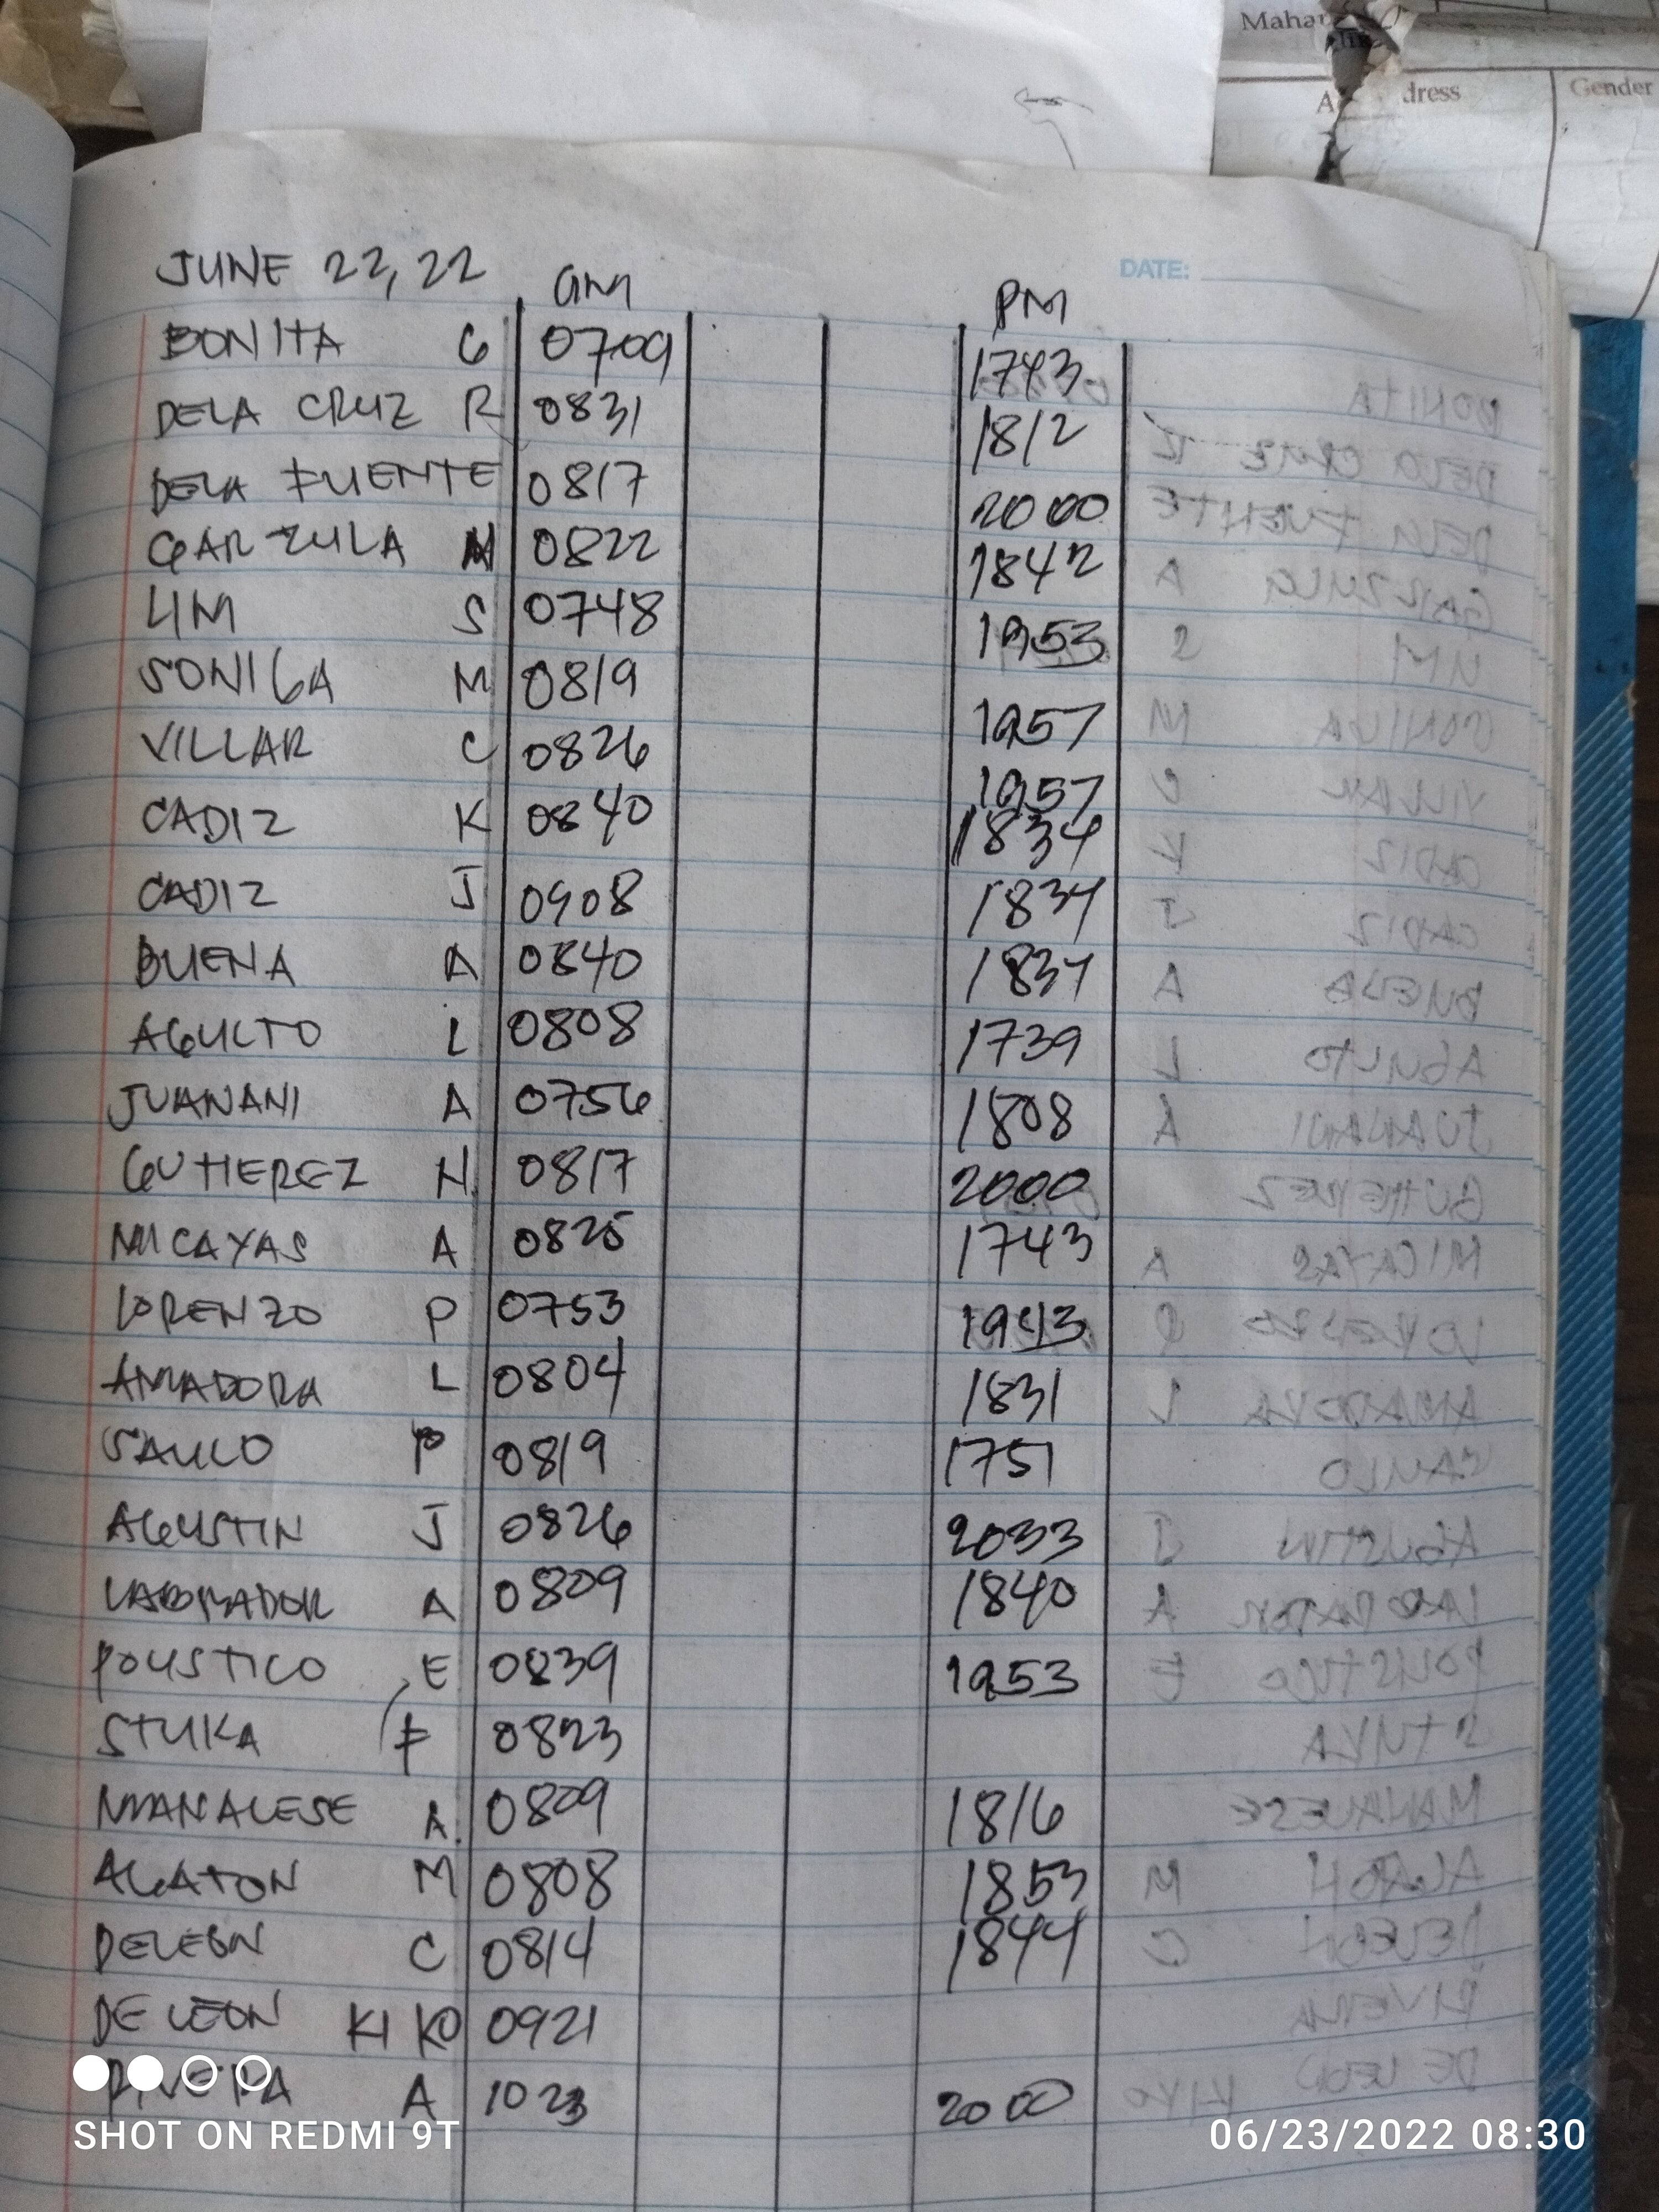 Mahar
A dress Gender
DATE:
JUNE 22, 22 AM PM
BONITA G 0709 1743
DELA CRUZ R 0831 1812
DELA FUENTE 0817 2000
GARZULA M 0822 1842
LIM S 0748 1953
SONIGA M 0819 1957
VILLAR C 0826 1957
CADIZ K 0840 1834
CADIZ J 0908 1834
BUENA A 0840 1834
AGULTO L 0808 1739
JUANANI A 0756 1808
GUTIEREZ N 0817 2000
MICAYAS A 0825 1743
LORENZO P 0753 1943
AMADORA L 0804 1831
SAULO P 0819 1751
AGUSTIN J 0826 2033
LABORADOR A 0809 1840
POLISTICO E 0839 1953
STUKA F 0823
MANALESE A. 0809 1816
AGATON M 0808 1853
DELEON C 0814 1844
DE LEON KIKO 0921
RIVERA A 1023 2000
SHOT ON REDMI 9T 06/23/2022 08:30